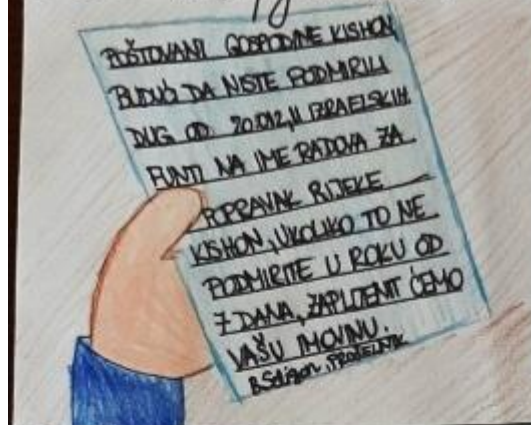 POŠTOVANI GOSPODINE KISHON,
BUDUĆI DA NISTE PODMIRILI
DUG OD 20.012,11 IZRAELSKIH
FUNTI NA IME RADOVA ZA
POPRAVAK RIJEKE
KISHON, UKOLIKO TO NE
PODMIRITE U ROKU OD
7 DANA, ZAPLIJENIT ĆEMO
VAŠU IMOVINU.
B. Seligson, PROČELNIK